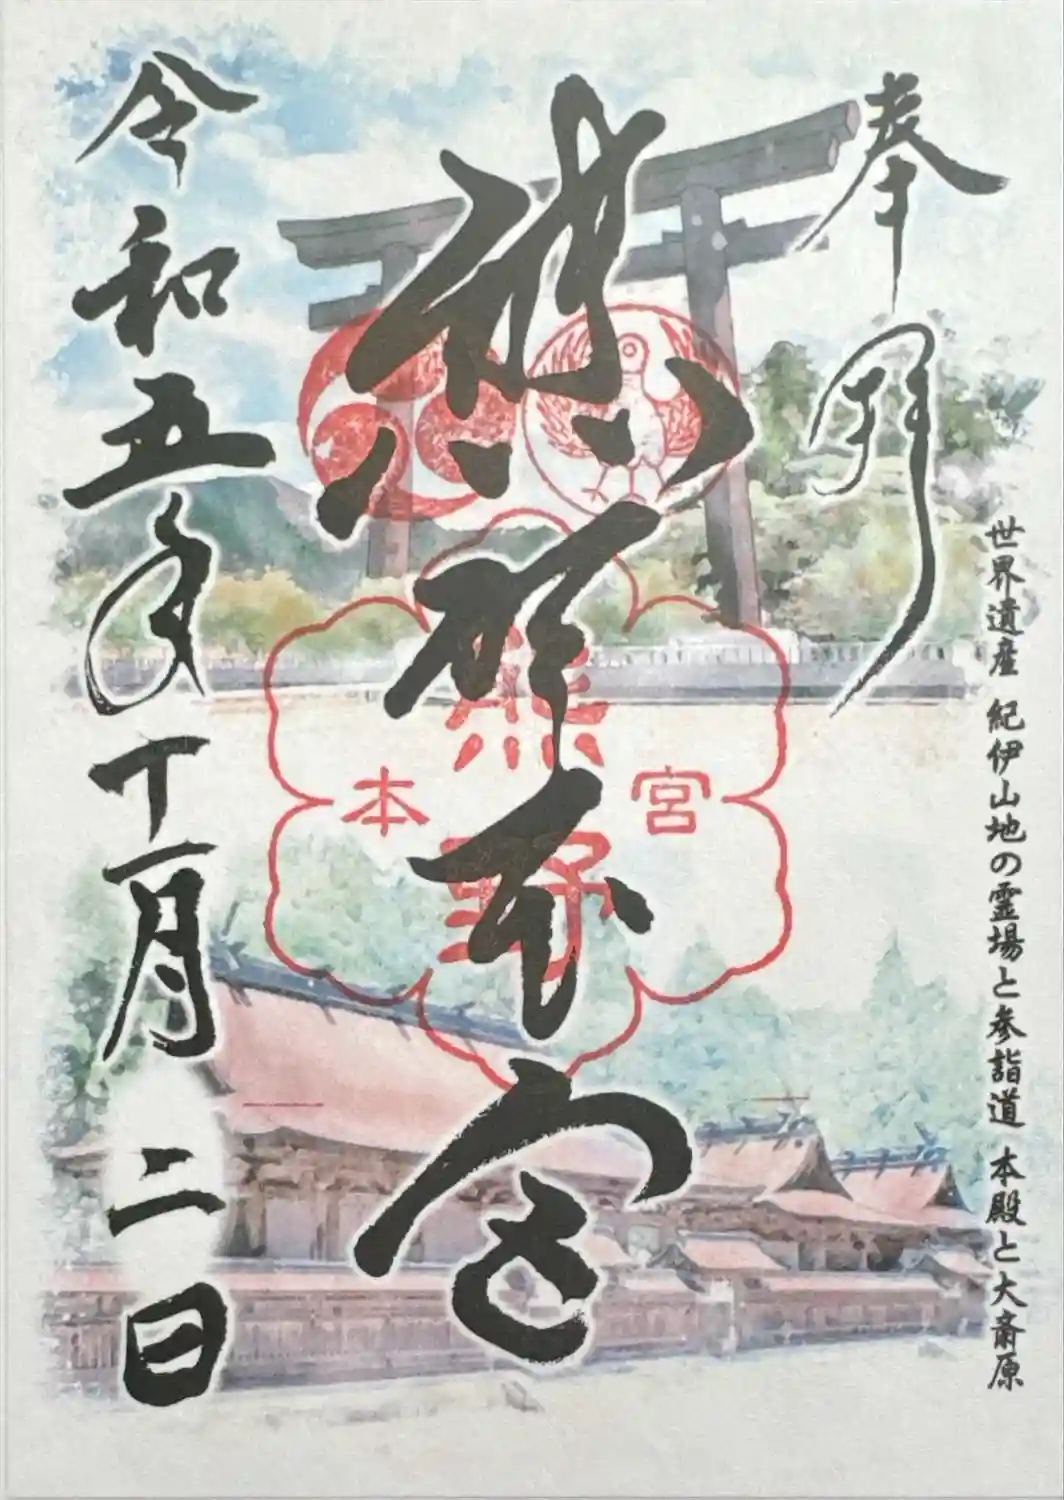 奉拝
世界遺産 紀伊山地の霊場と参詣道 本殿と大斎原
熊野本宮
熊野
本宮
令和五年十一月二日